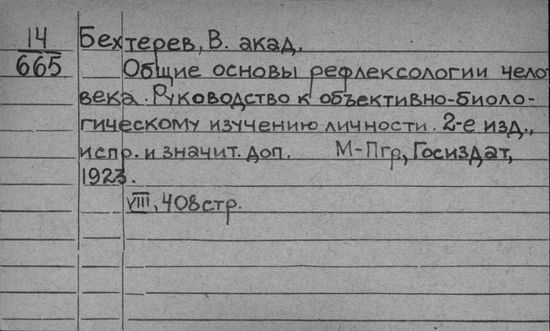 14
665
Бехтерев, В. акад.
Общие основы рефлексологии чело
века. Руководство к объективно-биоло-
гическому изучению личности. 2-е изд.,
испр. и значит. доп. М-Пгр, Госиздат,
1923.
VIII, 408 стр.